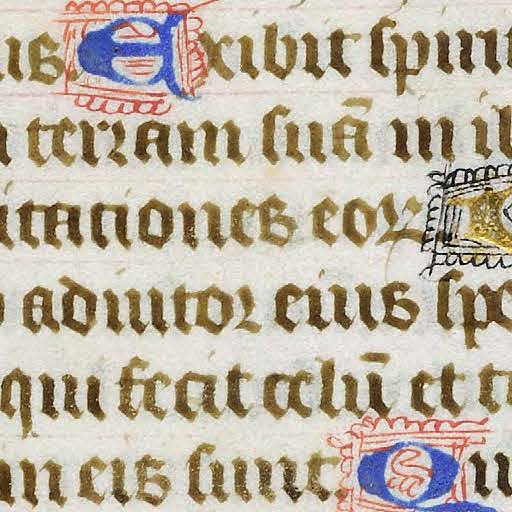 us Exibit spirit
terram suā in il
itationes eoꝝ
adiutor eius spe
qui fecit celū et t
in eis sunt. Qu